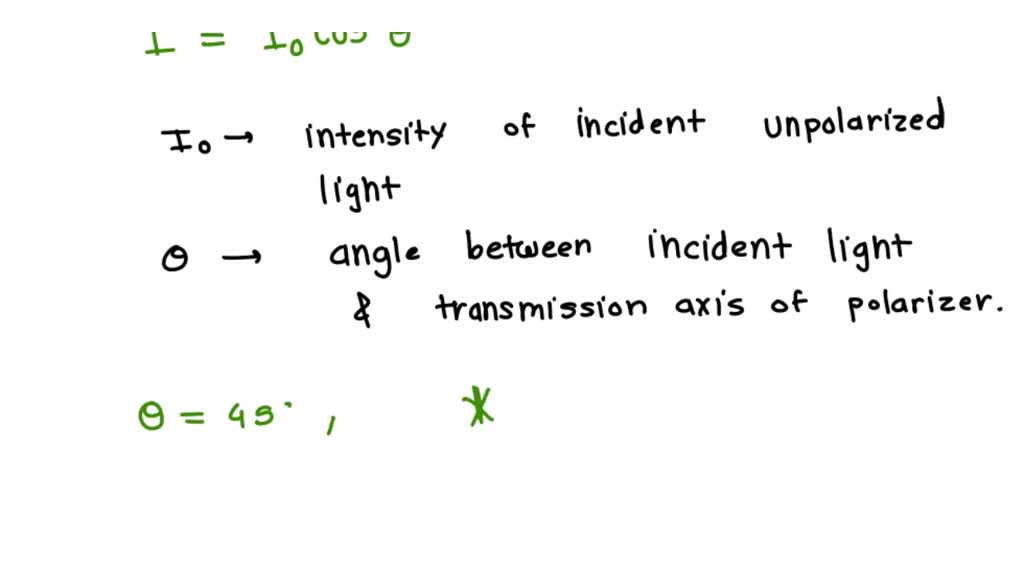 I = I₀ cos θ
I₀ → intensity of incident unpolarized
light
θ → angle between incident light
& transmission axis of polarizer.
θ = 45° ,